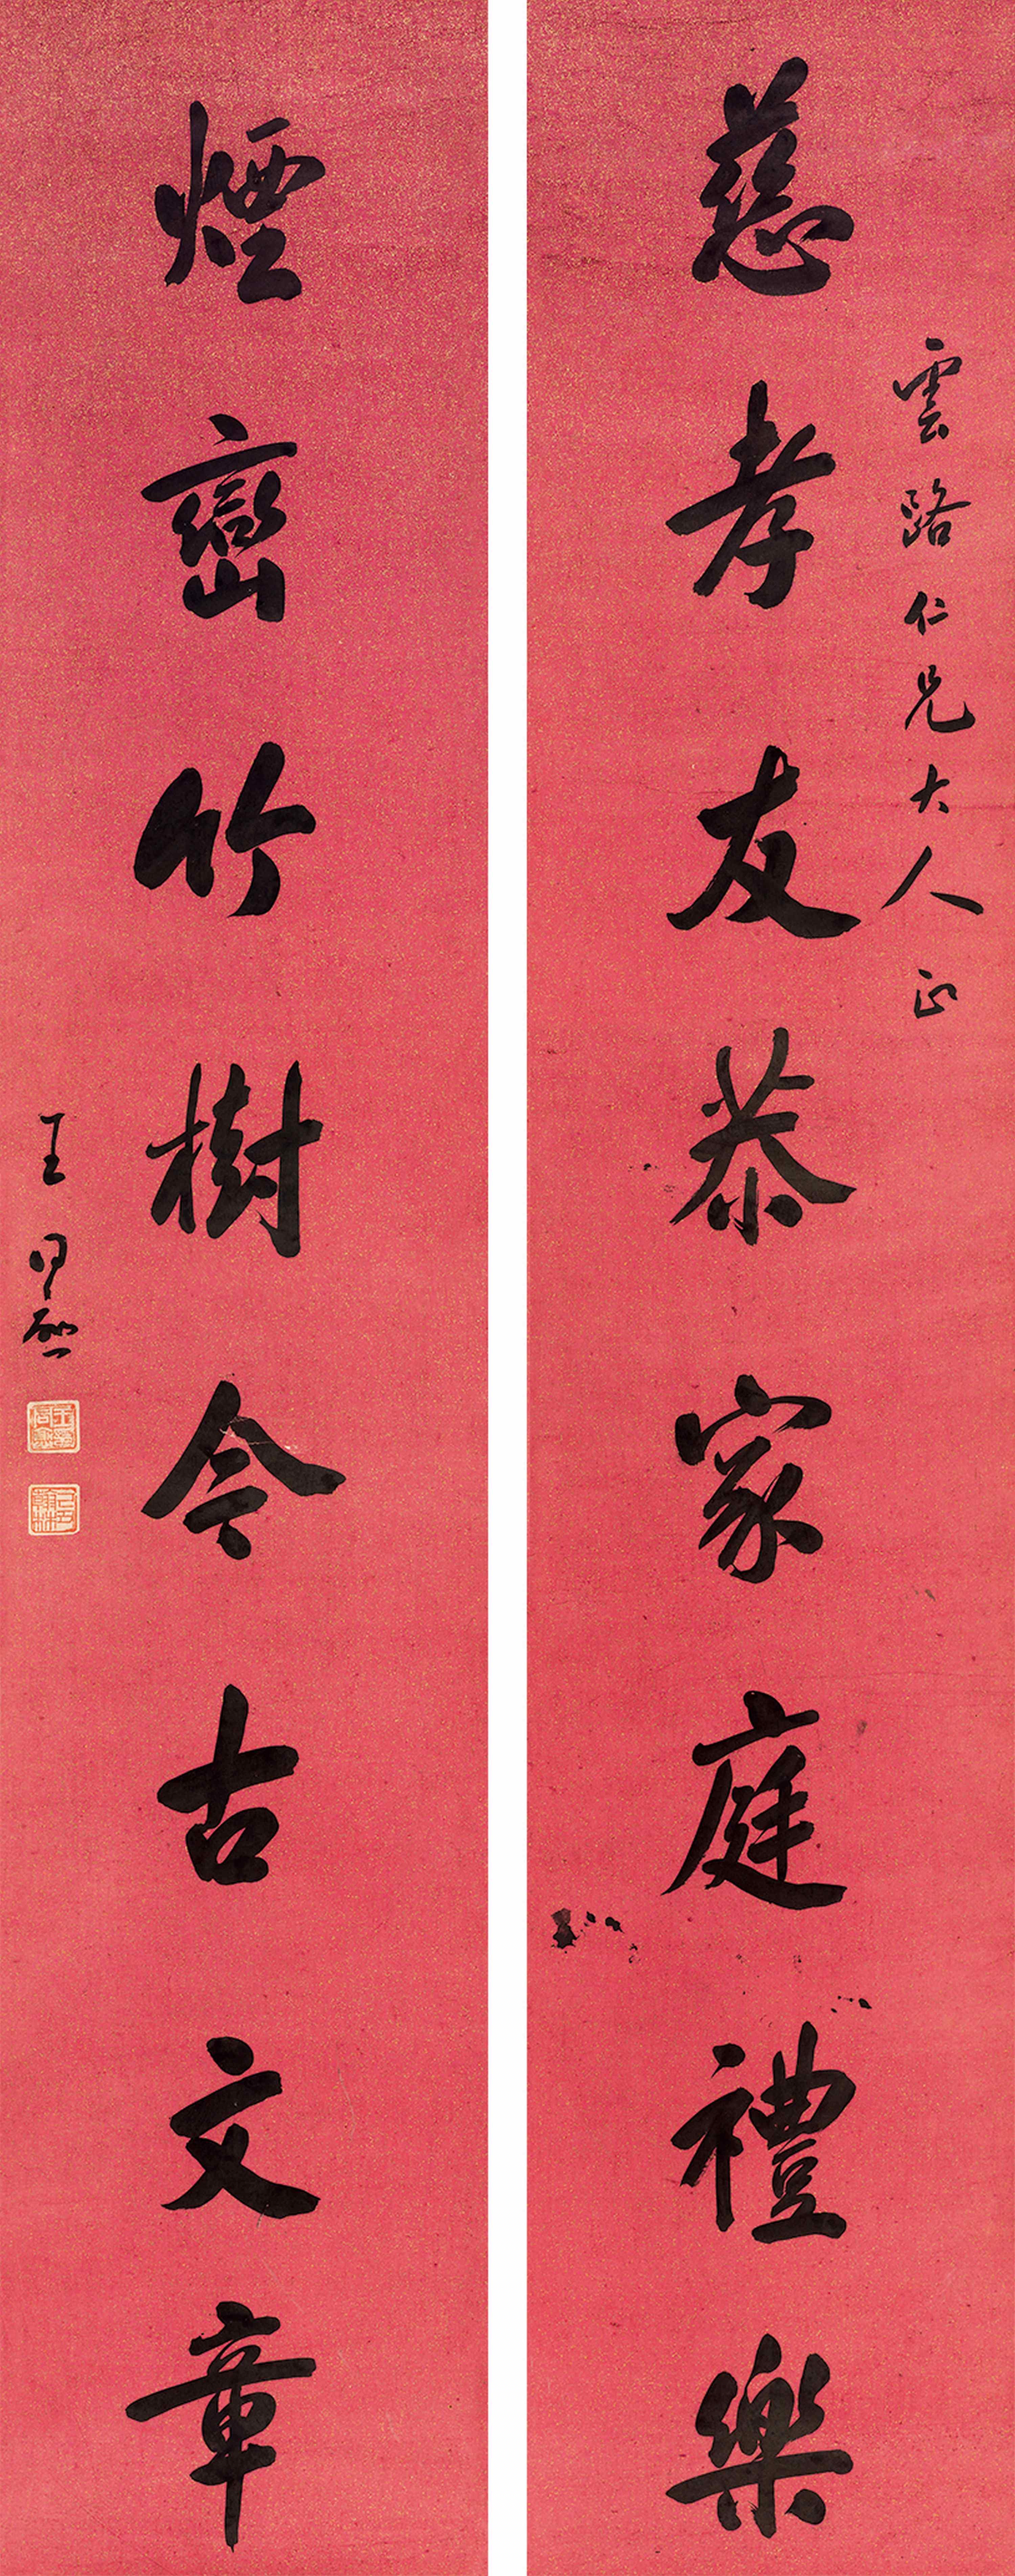 慈孝友恭家庭禮樂
雲路仁兄大人正
煙巒竹樹今古文章
王